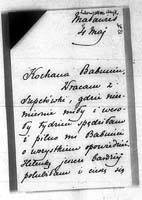 4 Maj
Kochana Babuniu,
Wracam z
gdzie nie-
zmiernie miły i weso-
ły tydzień spędziłam
i pilno mi Babuni
o wszystkiem opowiedzieć.
jeszcze bardziej
polubiłam i cieszę się